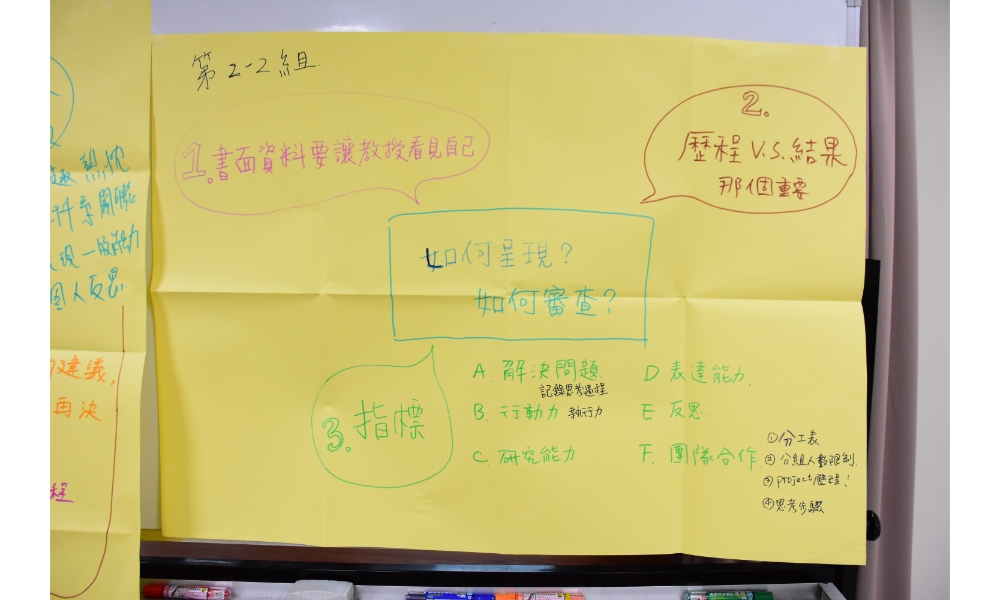 第2-2組
1.書面資料要讓教授看見自己
2.
歷程 V.S.結果
那個重要
如何呈現?
如何審查?
3.指標
A.解決問題
記錄思考過程
B.行動力 執行力
C.研究能力
D 表達能力.
E 反思.
F.團隊合作
①分工表
②分組人數限制.
③project歷程!
④思考步驟
熱忱
科系關聯
個人反思.
建議,
再決
程